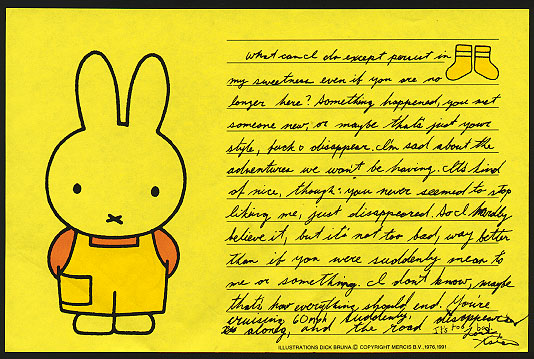 What can I do except persist in
my sweetness even if you are no
longer here? Something happened, you met
someone new, or maybe that's just your
style, fuck & disappear. I'm sad about the
adventures we won't be having. It's kind
of nice, though: you never seemed to stop
liking me, just disappeared. So I hardly
believe it, but it's not too bad, way better
than if you were suddenly mean to
me or something. I don't know, maybe
that's how everything should end. You're
cruising 60mph, suddenly, disappeared
along, and the road It's too bad.
Love
ILLUSTRATIONS DICK BRUNA © COPYRIGHT MERCIS B.V. 1976,1991